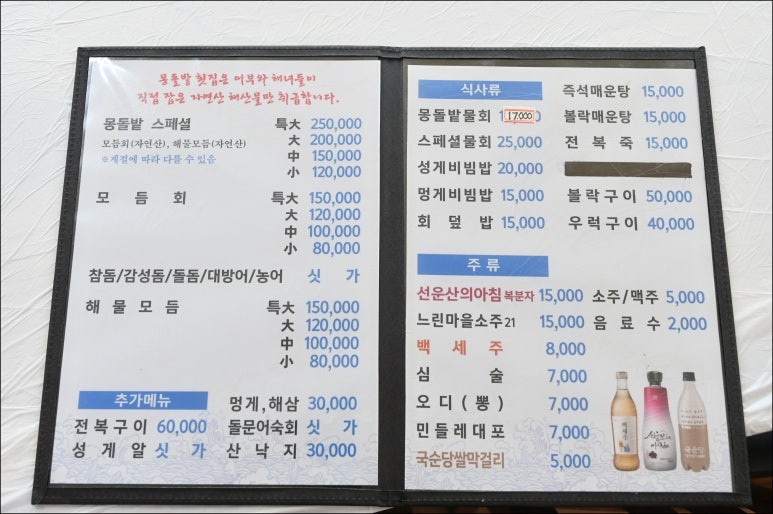 몽돌밭 횟집은 어부와 해녀들이
직접 잡은 자연산 해산물만 취급합니다.
몽돌밭 스페셜 특大 250,000
모듬회(자연산), 해물모듬(자연산) 大 200,000
※계절에 따라 다를 수 있음 中 150,000
小 120,000
모 듬 회 특大 150,000
大 120,000
中 100,000
小 80,000
참돔/감성돔/돌돔/대방어/농어 싯 가
해 물 모 듬 특大 150,000
大 120,000
中 100,000
小 80,000
추가메뉴
전복구이 60,000
성 게 알 싯 가
멍게,해삼 30,000
돌문어숙회 싯 가
산 낙 지 30,000
식사류
몽돌밭물회 17,000
스페셜물회 25,000
성게비빔밥 20,000
멍게비빔밥 15,000
회 덮 밥 15,000
즉석매운탕 15,000
볼락매운탕 15,000
전 복 죽 15,000
볼락구이 50,000
우럭구이 40,000
주 류
선운산의아침 복분자 15,000
느린마을소주21 15,000
백 세 주 8,000
심 술 7,000
오 디 ( 뽕 ) 7,000
민들레대포 7,000
국순당쌀막걸리 5,000
소주/맥주 5,000
음 료 수 2,000
백세주